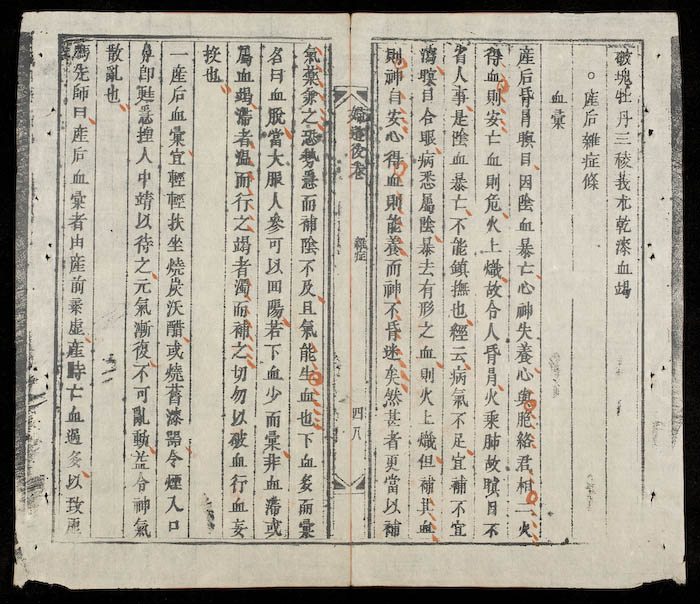 破塊牡丹三稜莪朮乾漆血竭
○產后雜症條
血暈
產后昏冒瞑目因陰血暴亡心神失養心與胞絡君相二火
得血則安亡血則危火上熾故令人昏冒火乘肺故瞑目不
省人事是陰血暴亡不能鎮撫也經云病氣不足宜補不宜
瀉瞑目合眼病悉屬陰暴去有形之血則火上熾但補其血
則神自安心得血則能養而神不昏迷矣然甚者更當以補
婦道後卷
雜症
四八
氣藥兼之恐勢急而補陰不及且氣能生血也下血多而暈
名曰血脫當大服人參可以回陽若下血少而暈非血滯或
屬血竭滯者溫而行之竭者濁而補之切勿以破血行血妄
投也
一產后血暈宜輕輕扶坐燒炭沃醋或燒舊漆器令煙入口
鼻即甦急捏人中靖以待之元氣漸復不可亂動益令神氣
散亂也
馮先師曰產后血暈者由產前素虛產時亡血過多以致